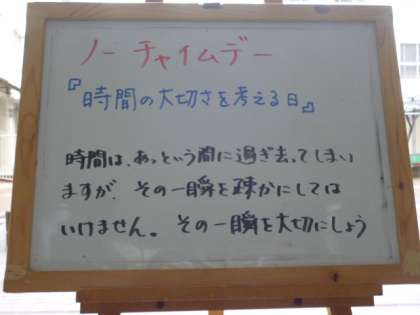 ノーチャイムデー
『時間の大切さを考える日』
時間は、あっという間に過ぎ去ってしまい
ますが、その一瞬を疎かにしては
いけません。その一瞬を大切にしよう